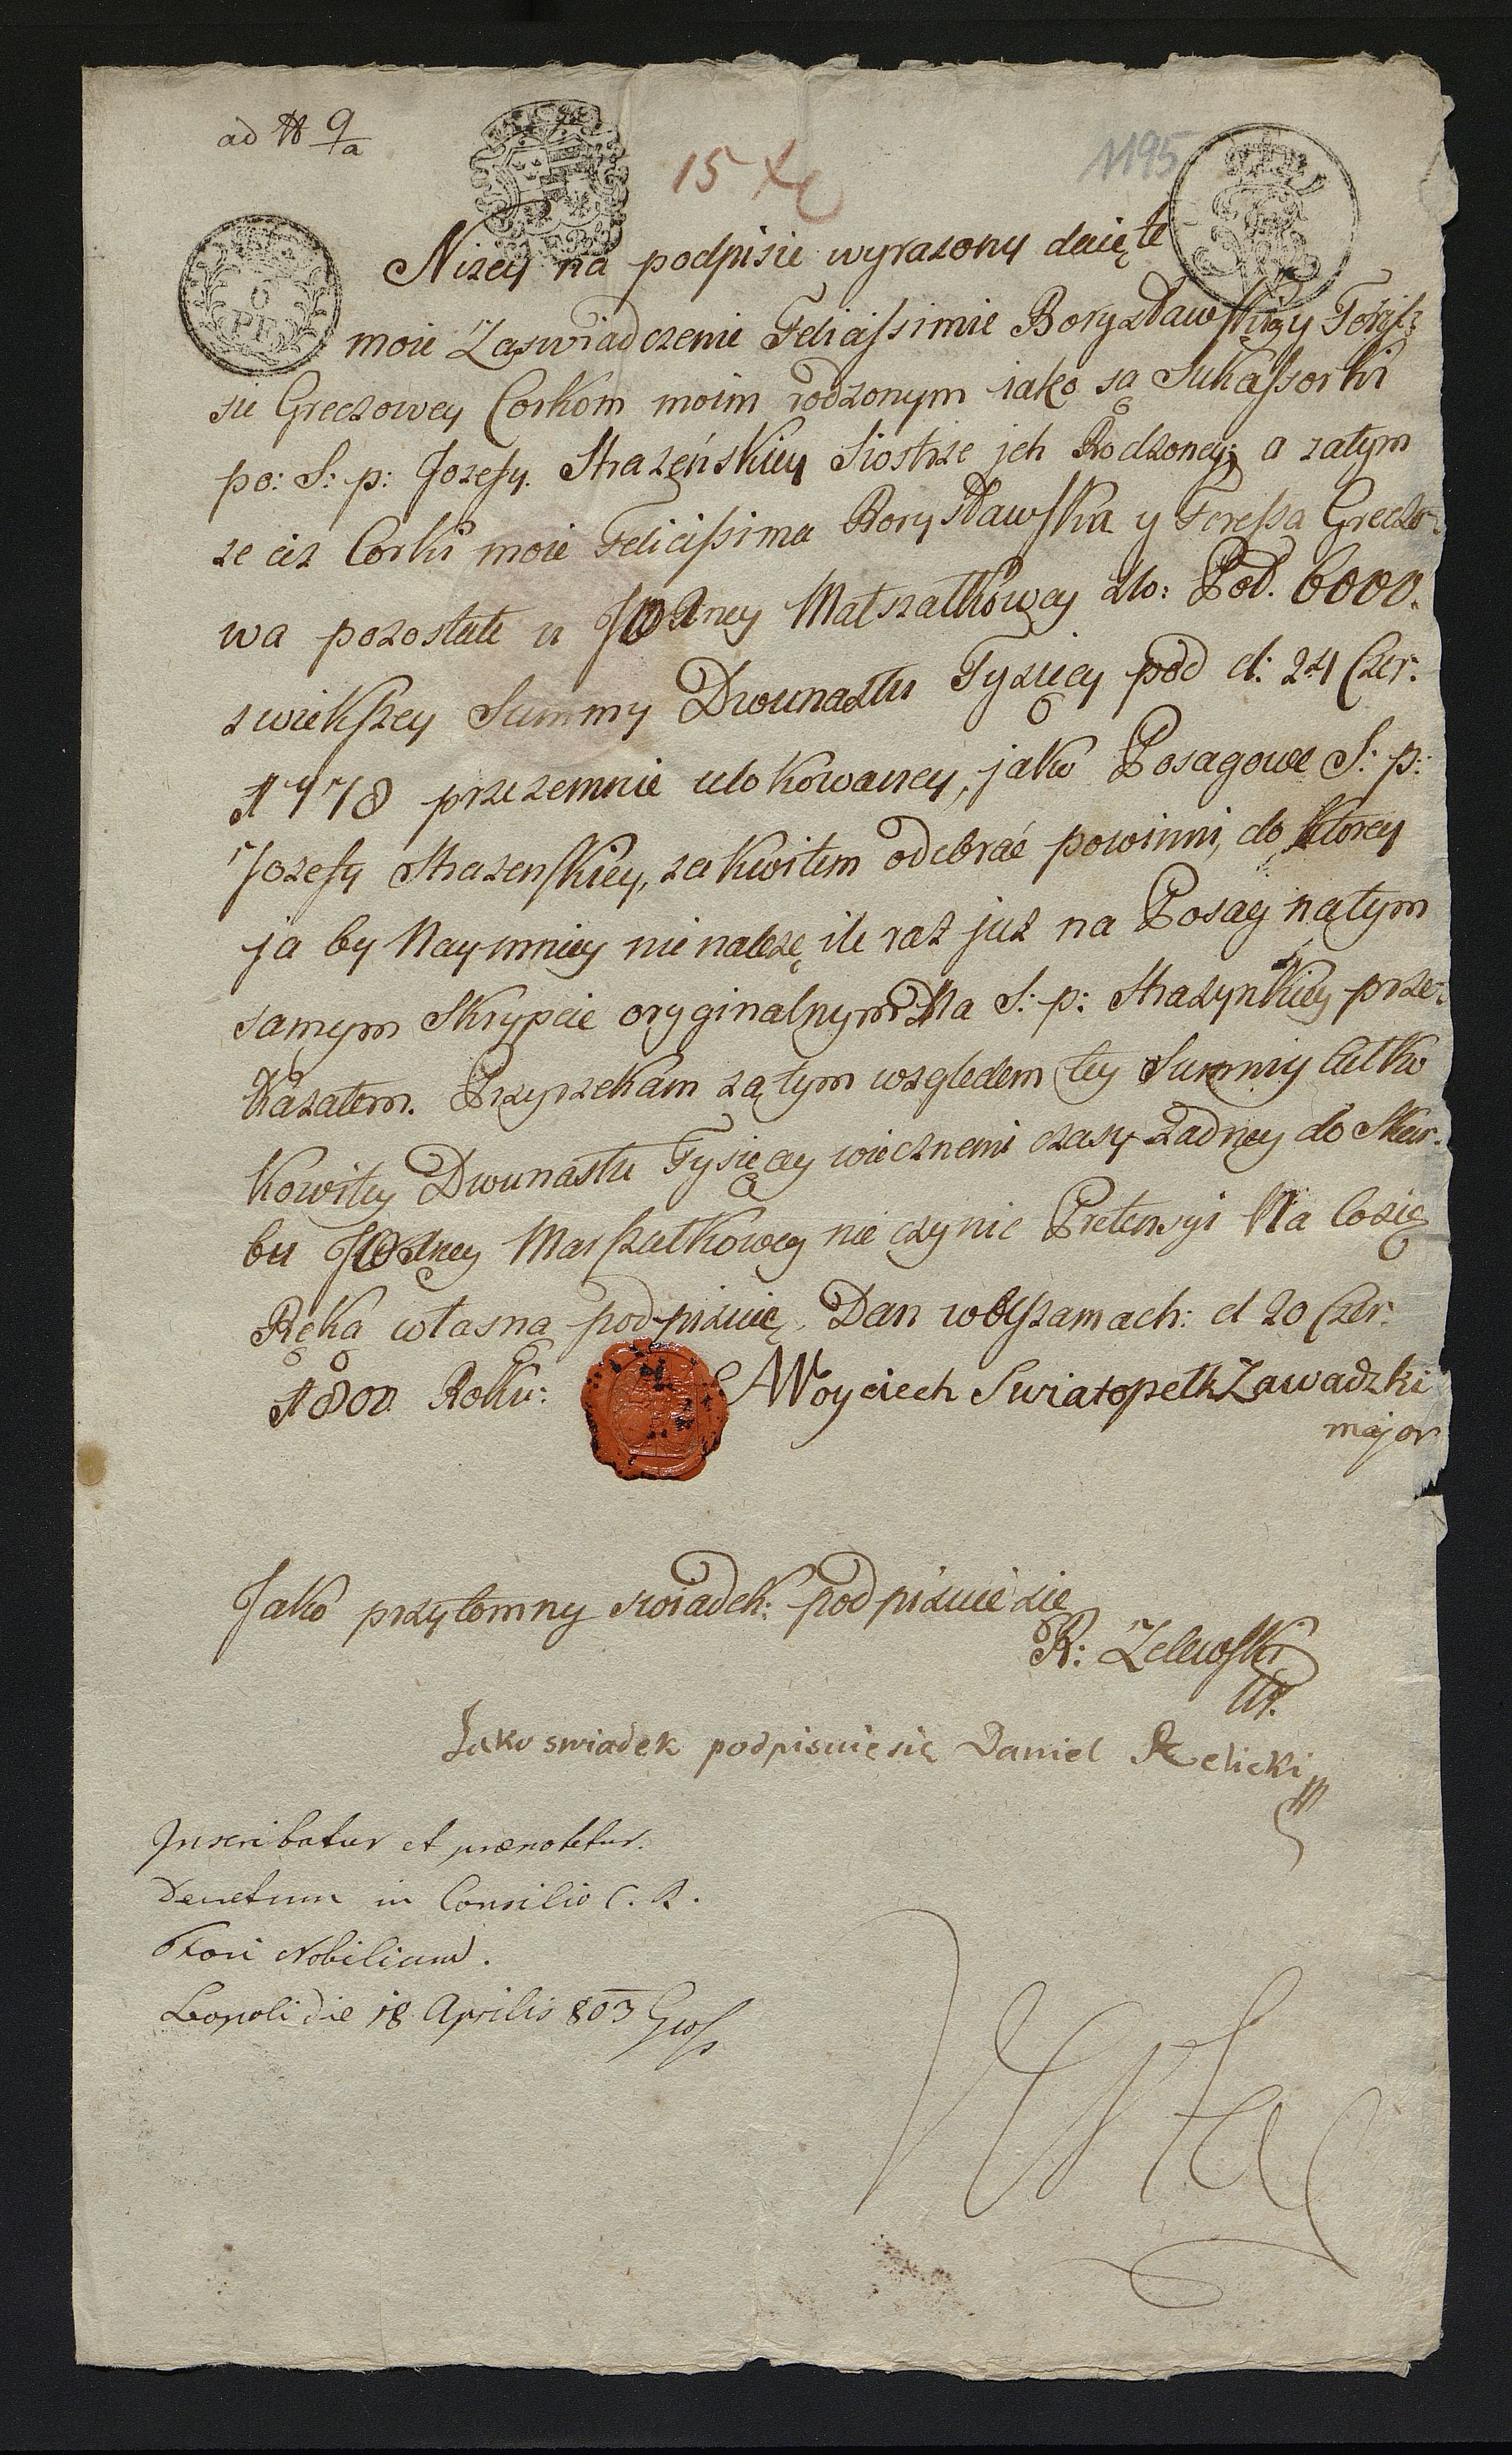 ad № 9/a
15 x
1195
6
PR
Nizey na podpisie wyrazony daię te
moie Zaswiadczenie Felicissimie Borysławskiey y Teress
sie Greczowey Corkom moim rodzonym iako są Sukassorki
po: S: p: Jozefy. Strazeńskiey Siostrze jch Rodzoney; a zatym
ze ciz Corki moie Felicissima Borysławska y Teressa Greczo
wa pozostałe u JWney Małszałkowey zło: Pol. 6000.
z wiekszey Summy Dwunastu Tysięcy pod d: 24 Czer:
1778 przezemnie ulokowaney, jako Posagowe S: p:
Jozefy Strazenskiey, za kwitem odebrać powinni, do ktorey
ja by Naymniey nie nalezę ile raz juz na Posag natym
samym Skrypcie oryginalnym Na S: p: Strazynskiey prze
kazałem. Przyrzekam zatym wzgledem tey Summy całko
kowitey Dwunastu Tysięcy wiecznemi czasy zadney do Skar
bu JWney Marszałkowey nie czynic Pretensyi Na Cosię
Ręką własną podpisuię. Dan w Uszamach: d 20 Czer:
1800. Roku: Woyciech Swiatopełk Zawadzki
major
Jako przytomny swiadek: podpisuie sie
R: Zelewski
Jako swiadek podpisuie sie Daniel Relicki
Inscribatur et prænotetur.
Decretum in Consilio C. R.
Fori Nobilium.
Leopoli die 18 Aprilis 803